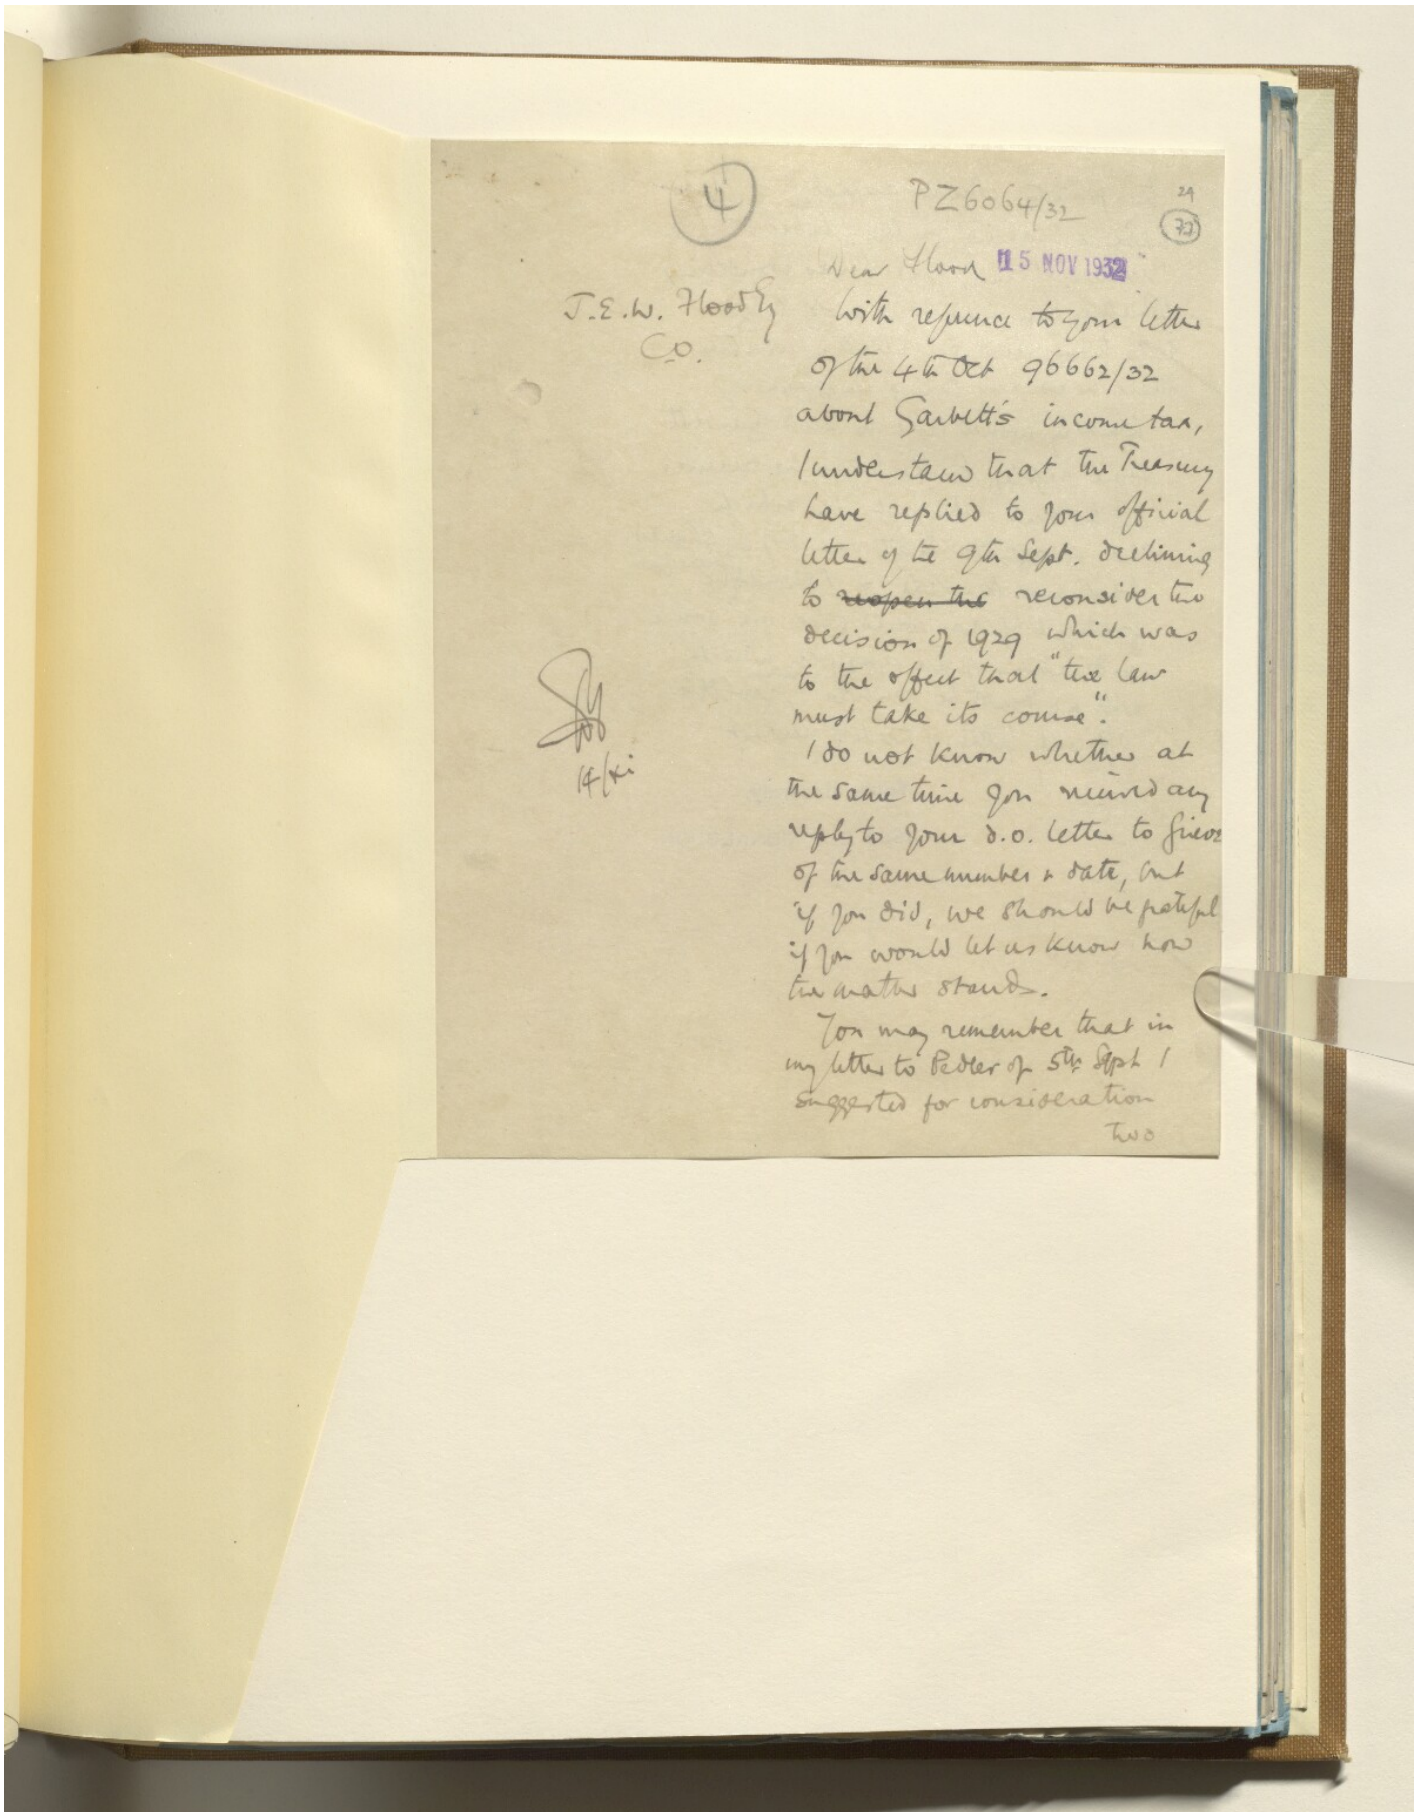 4
PZ6064/32
29
Dear Flood 15 NOV 1932
J.E.W. Flood Esq
C.O.
With reference to your letter
of the 4th Oct 96662/32
about Garbett's income tax,
I understand that the Treasury
have replied to your official
letter of the 9th Sept. declining
to reopen the reconsider the
decision of 1929 which was
to the effect that "the law
must take its course".
I do not know whether at
the same time you received any
reply to your d.o. letter to Grieve
of the same number & date, but
if you did, we should be grateful
if you would let us know how
the matter stands.
You may remember that in
my letter to Pedler of 5th Sept I
suggested for consideration
two
14/xi